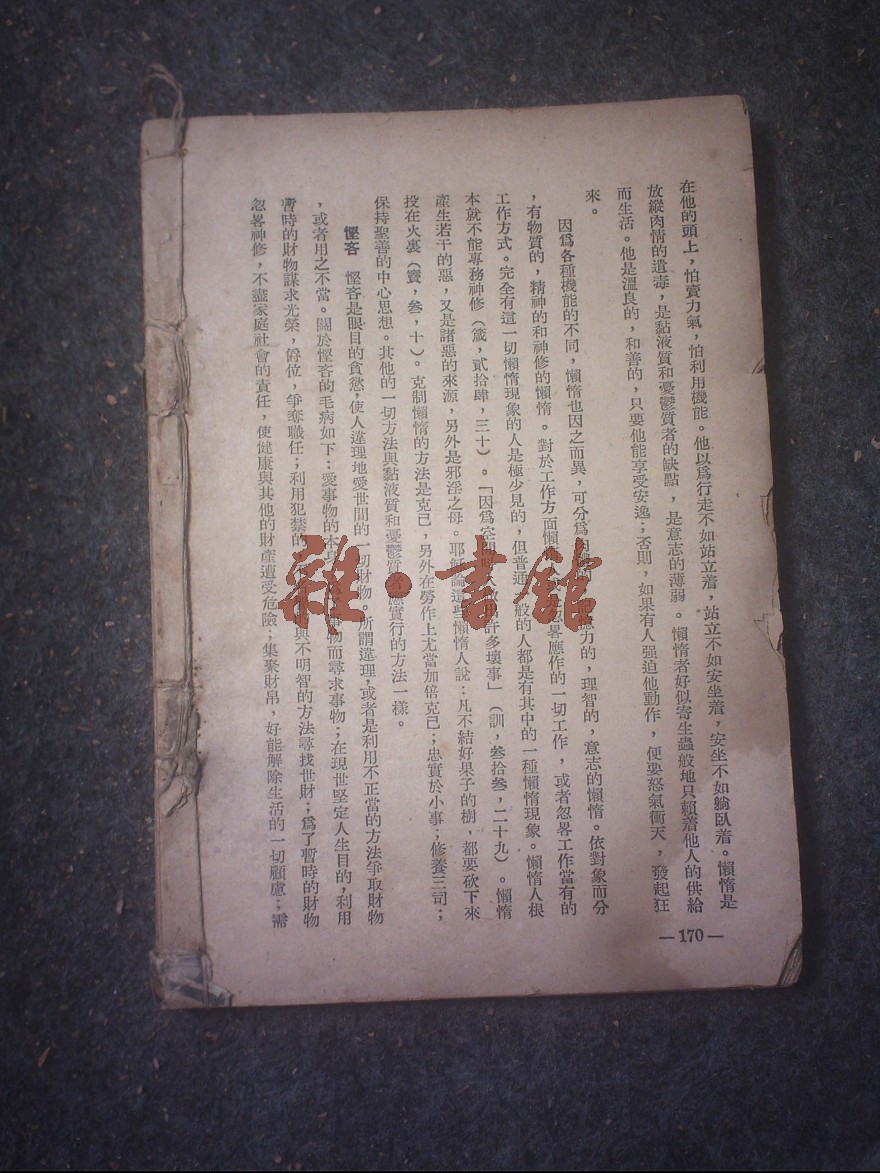 在他的頭上，怕賣力氣，怕利用機能。他以爲行走不如站立着，站立不如安坐着，安坐不如躺臥着。懶惰是
放縱肉情的遺毒，是黏液質和憂鬱質者的缺點，是意志的薄弱。懶惰者好似寄生蟲般地只賴着他人的供給
而生活。他是溫良的，和善的，只要他能享受安逸；否則，如果有人强迫他動作，便要怒氣衝天，發起狂
來。
因爲各種機能的不同，懶惰也因之而異，可分爲力的，理智的，意志的懶惰。依對象而分
，有物質的，精神的和神修的懶惰。對於工作方面懶惰忽畧應作的一切工作，或者忽畧工作當有的
工作方式。完全有這一切懶惰現象的人是極少見的，但普通一般的人都是有其中的一種懶惰現象。懶惰人根
本就不能專務神修（箴，貳拾肆，三十）。「因爲空閒許多壞事」（訓，叁拾叁，二十九）。懶惰
產生若干的惡，又是諸惡的來源，另外是邪淫之母。耶穌論這些懶惰人說：凡不結好果子的樹，都要砍下來
投在火裏（竇，叁，十）。克制懶惰的方法是克己，另外在勞作上尤當加倍克己；忠實於小事；修養三司；
保持聖善的中心思想。其他的一切方法與黏液質和憂鬱質者應實行的方法一樣。
慳吝 慳吝是眼目的貪慾，使人違理地愛世間的一切財物。所謂違理，或者是利用不正當的方法爭取財物
，或者用之不當。關於慳吝的毛病如下：愛事物的本身，事物而尋求事物；在現世堅定人生目的，利用
暫時的財物謀求光榮，爵位，爭奪職任；利用犯禁的與不明智的方法尋找世財；爲了暫時的財物
忽畧神修，不盡家庭社會的責任，使健康與其他的財產遭受危險；集聚財帛，好能解除生活的一切顧慮；需
—170—
雜·書館